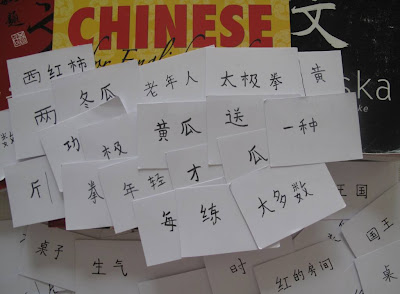 CHINESE
文
ska
西红柿
老年人
太极拳
黄
两
冬瓜
黄瓜
送
一种
功
极
斤
拳
年轻
才
瓜
每
练
大多数
王国
国王
桌子
生气
时
红的房间
桌